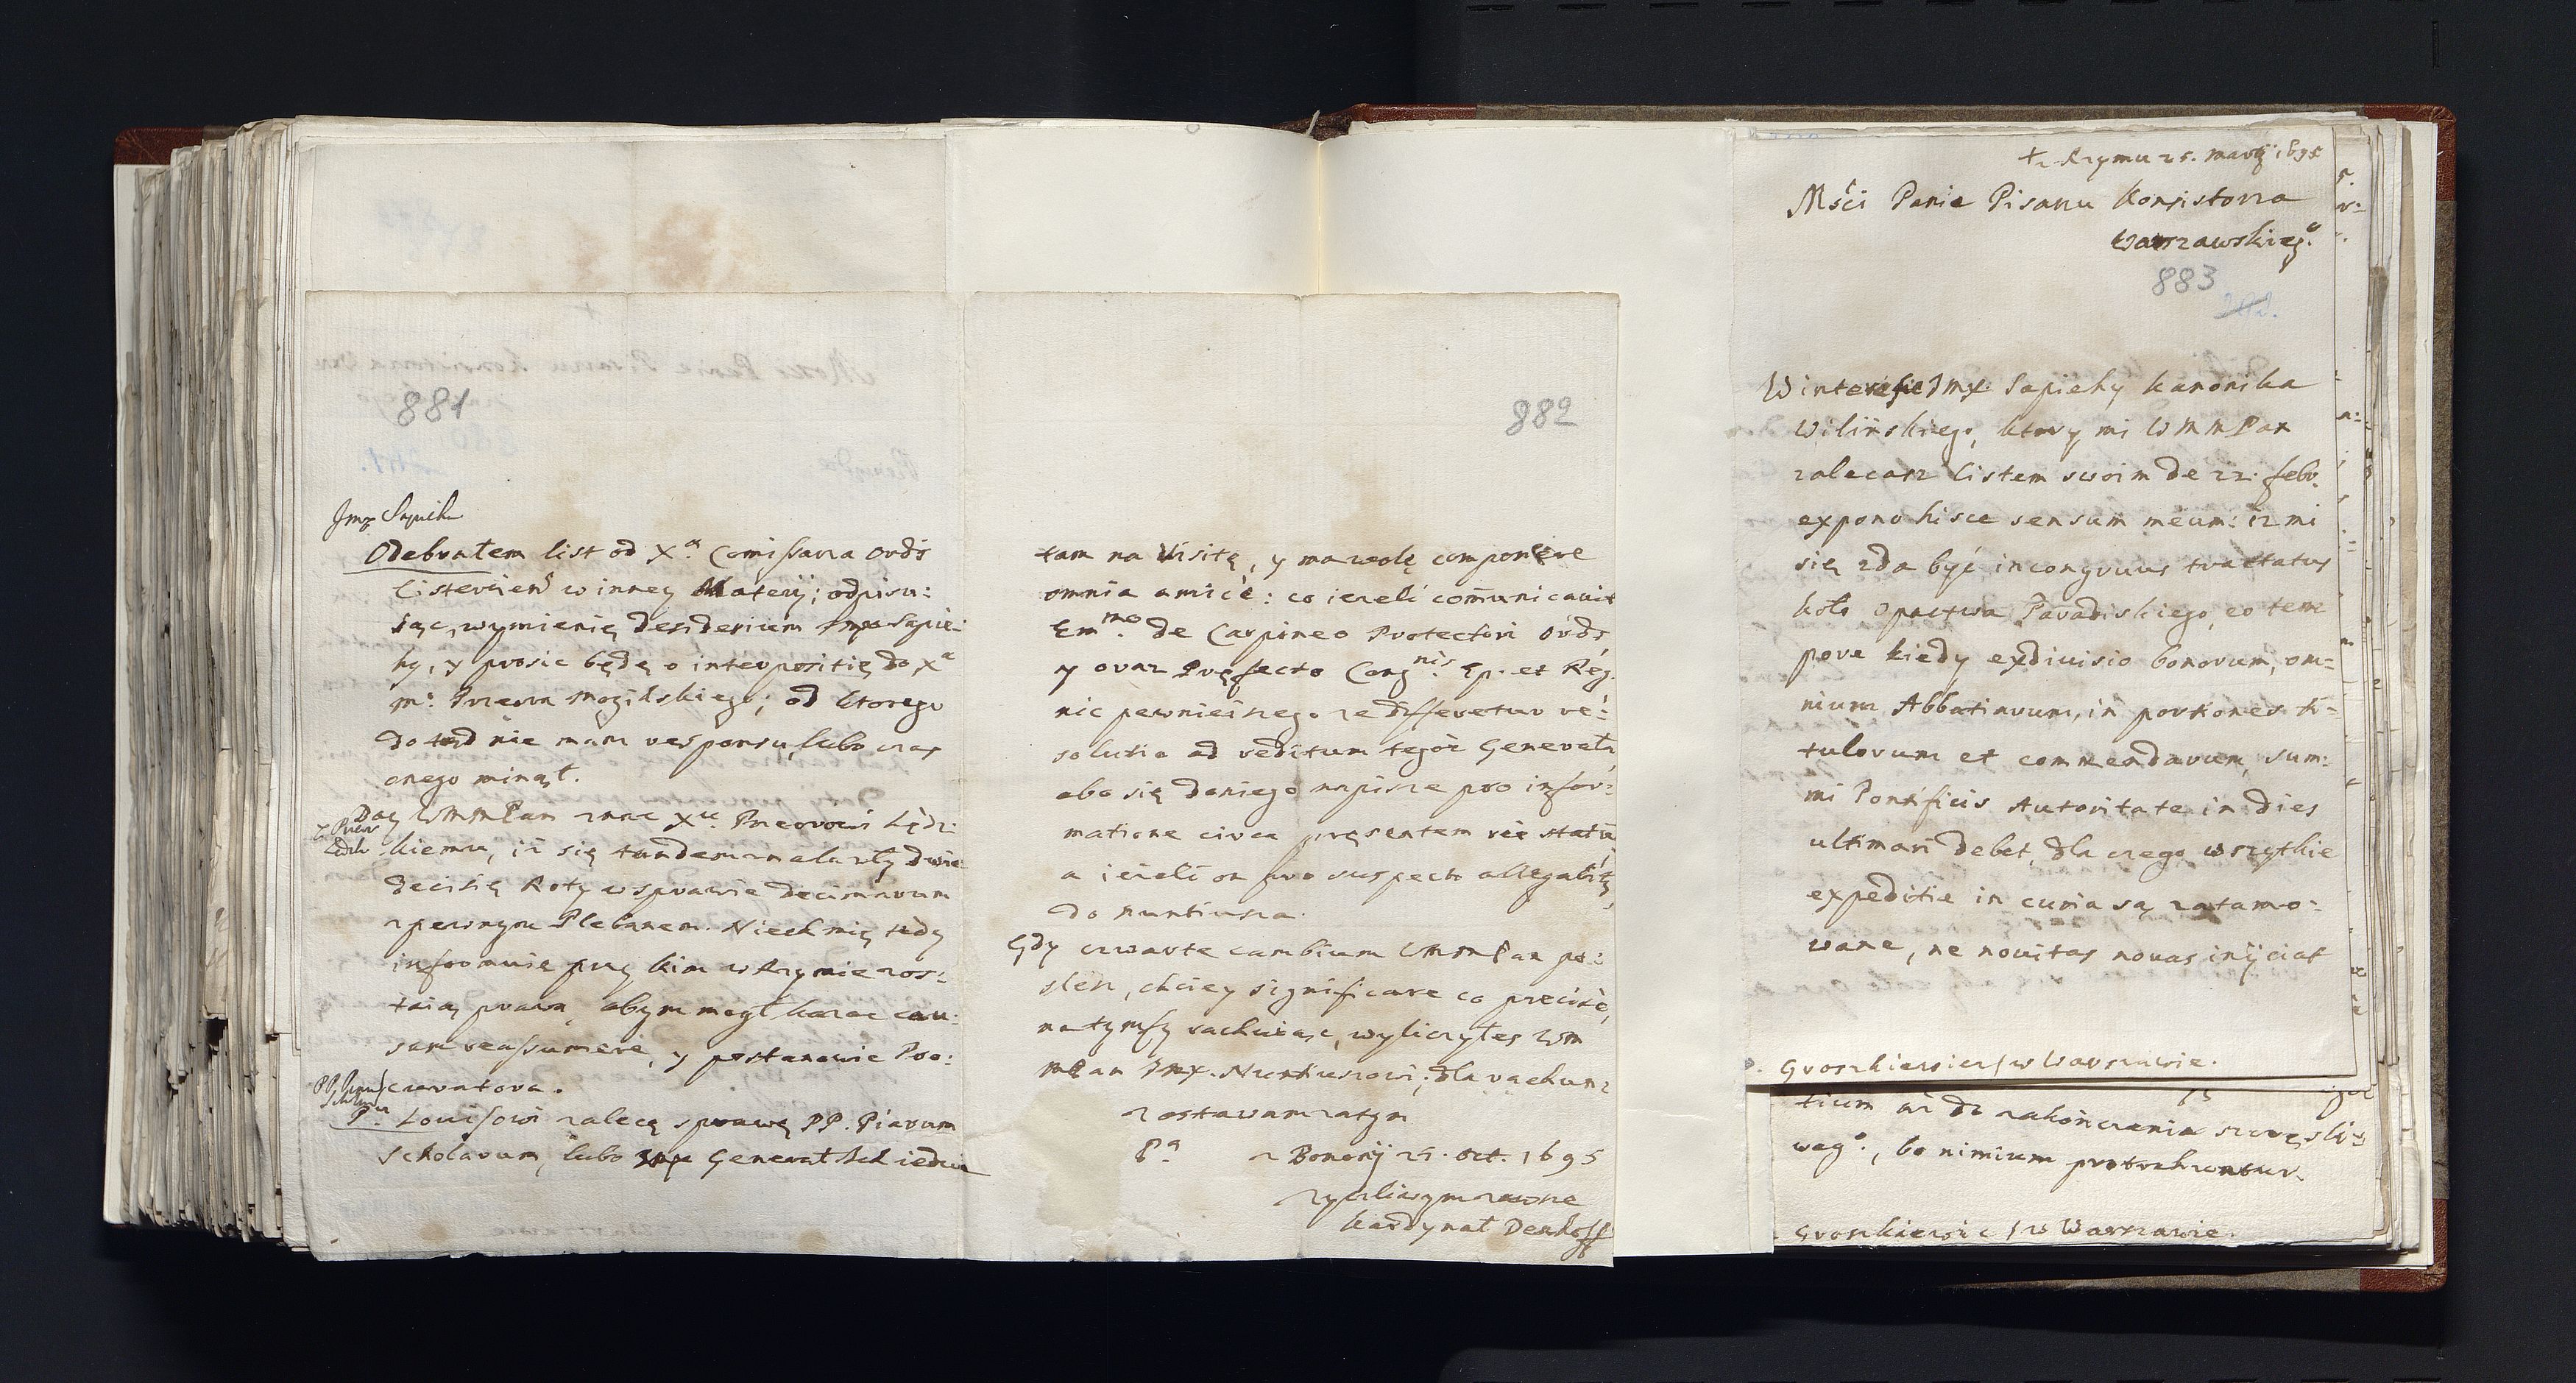 881
Jmx Sapieha
Odebrałem list od Xª Comissarza Ord͠s
Cistercien͠s w inney Materij; odpisu:
sąc, wymienię desiderium Jmxa Sapie:
hy, y prosic będę o interpositię do Xª
mº Przeora Mogilskiego; od ktorego
do tąd nie mam responsu, lubo czas
onego minął.
Day WMMPan znac Xu Przeorowi Lędz:
kiemu, iż się tandem znalazły dwie
decisię Roty w sprawie decimarum
z pewnym Plebanem. Niech mię tedy
informuie przy kim w Rzymie zos:
taią prawa, abym mogł kazac cau:
sam reassumere, y postanowic Pro:
curatora.
P. Louisowi zalecę sprawę PP. Piarum
Scholarum, lubo Jmx Generał sch iedzie
882
tam na Visitę, y ma wolę componere
omnia amicè: co ieżeli com̃unicavit
Emᵐᵒ de Carpineo Protectori Ord͠s
y oraz Pręfecto Congⁿⁱˢ Ep. et Reg.
nic pewnieiszego ze differetur re:
solutio ad reditum tegoż Generała,
abo się do niego napisze pro infor:
matione circa pręsentem rei statũ
a ieżeli on pro suspecto allegabit
do Nuntiusza.
Gdy czwarte cambium WMMPan po:
szlesz, chciey significare co precisè,
na tymfy rachuiąc, wyliczyłes WM
MPan Jmx. Nuntiuszowi; dla rachunz
zostawam zatym
Pª z Bononij 25. Oct. 1695
zyczliwym zawsze
Kardynał Denhoff
+ z Rzymu 25. Martij 1695
Mści Panie Pisarzu Konsistorza
Warszawskiegº.
883
W interessie Jmx. Sapiehy Kanonika
Wilinskiego, ktory mi WMMPan
zalecasz listem swoim de 22. febr.
expono hisce sensum meum: iz mi
się zda być incongruus tractatus
koło Opactwa Paradiskiego, eo tem
pore kiedy ex divisio bonorum, om:
nium Abbatiarum, in portiones ti:
tulorum et commendarum, sum:
mi Pontificis Autoritate in dies
ultimari debet, dla czego wszytkie
expeditie in curia są zatamo:
wane, ne novitas novas inijciat
Groszkiewicz / w Warszawie.
tium aż do zakonczenia szczęśli:
wegº., bo nimium protrahuntur.
Groszkiewic / w Warszawie.